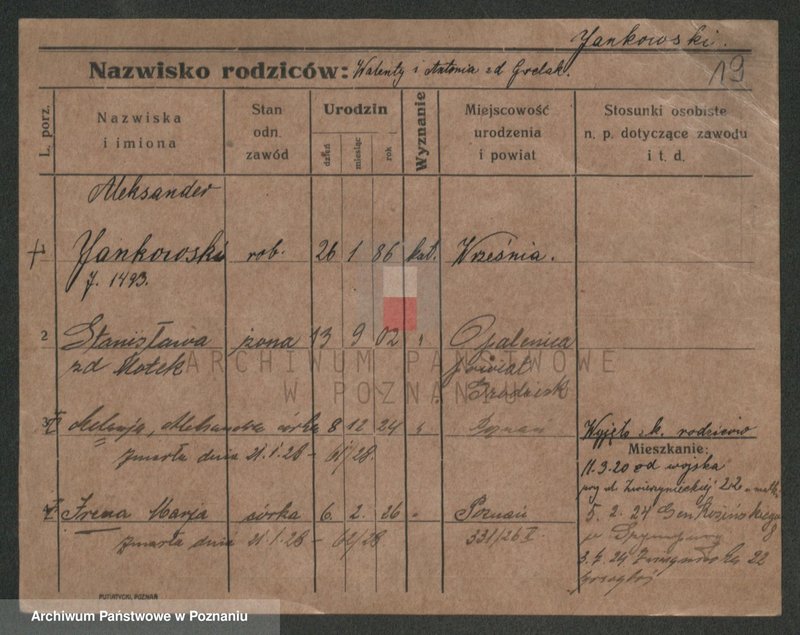 Yankowski.
19
Nazwisko rodziców: Walenty i Antonia zd Grelak.
L. porz.
Nazwiska i imiona
Stan odn. zawód
Urodzin
dzień
miesiąc
rok
Wyznanie
Miejscowość urodzenia i powiat
Stosunki osobiste n. p. dotyczące zawodu i t. d.
Aleksander
Yankowski rob. 26 1 86 kat. Września.
J. 1493.
2 Stanisława żona 13 9 02 " Opalenica
zd Motek powiat
Grodzisk
3 Melanja, Aleksandra córka 8 12 24 " Poznań
zmarła dnia 21.1.28 - 61/28.
Wyjęto z k. rodziców
Mieszkanie:
11.3.20 od wojska
przy ul. Zwierzynieckiej 22
4 Irena Marja córka 6. 2. 26 " Poznań
zmarła dnia 21.1.28 - 62/28 331/26 II.
5. 2. 24
3. 7. 24 22
ARCHIWUM PAŃSTWOWE
W POZNANIU
PUTIATYCKI, POZNAŃ
Archiwum Państwowe w Poznaniu